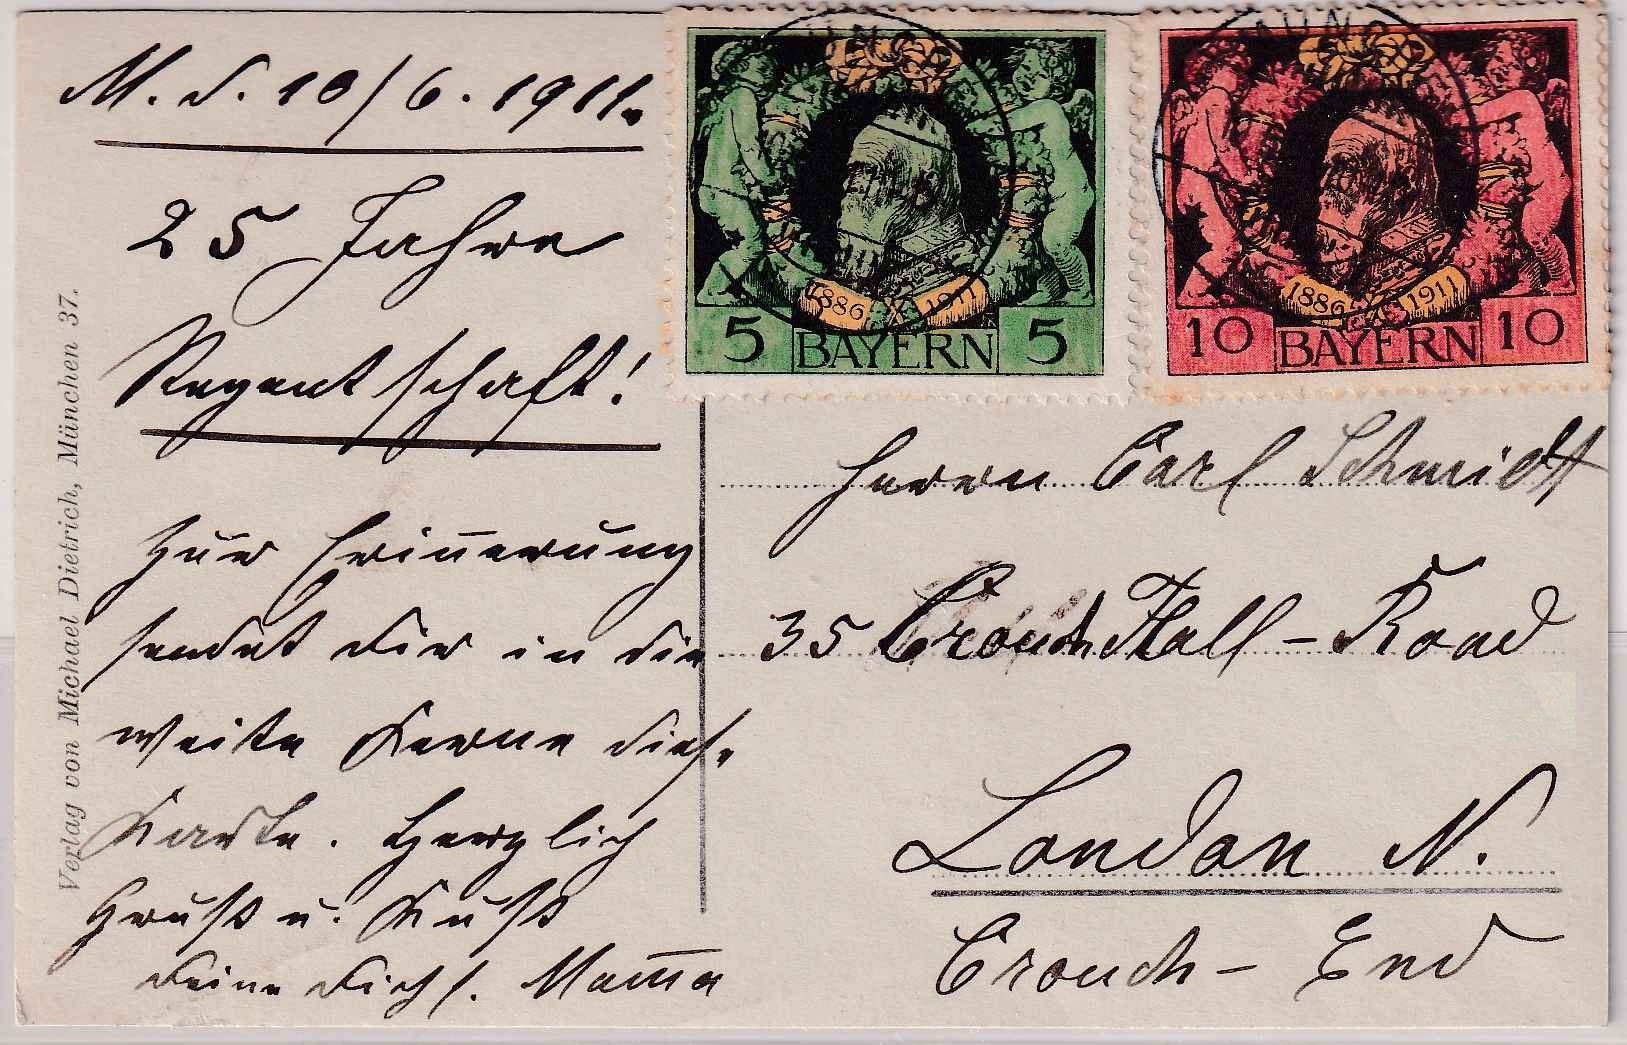 M. d. 10/6. 1911.
25 Jahre
Regentschaft!
Zur Erinnerung
sendet Dir in die
weite Ferne diese
Karte. Herzlich
Gruß u. Kuß
Deine Dich l. Mama
Verlag von Michael Dietrich, München 37.
MÜNCHEN
1886 1911
5 BAYERN 5
1886 1911
10 BAYERN 10
Herrn Carl Schmidt
35 Crouch Hall-Road
London N.
Crouch-End